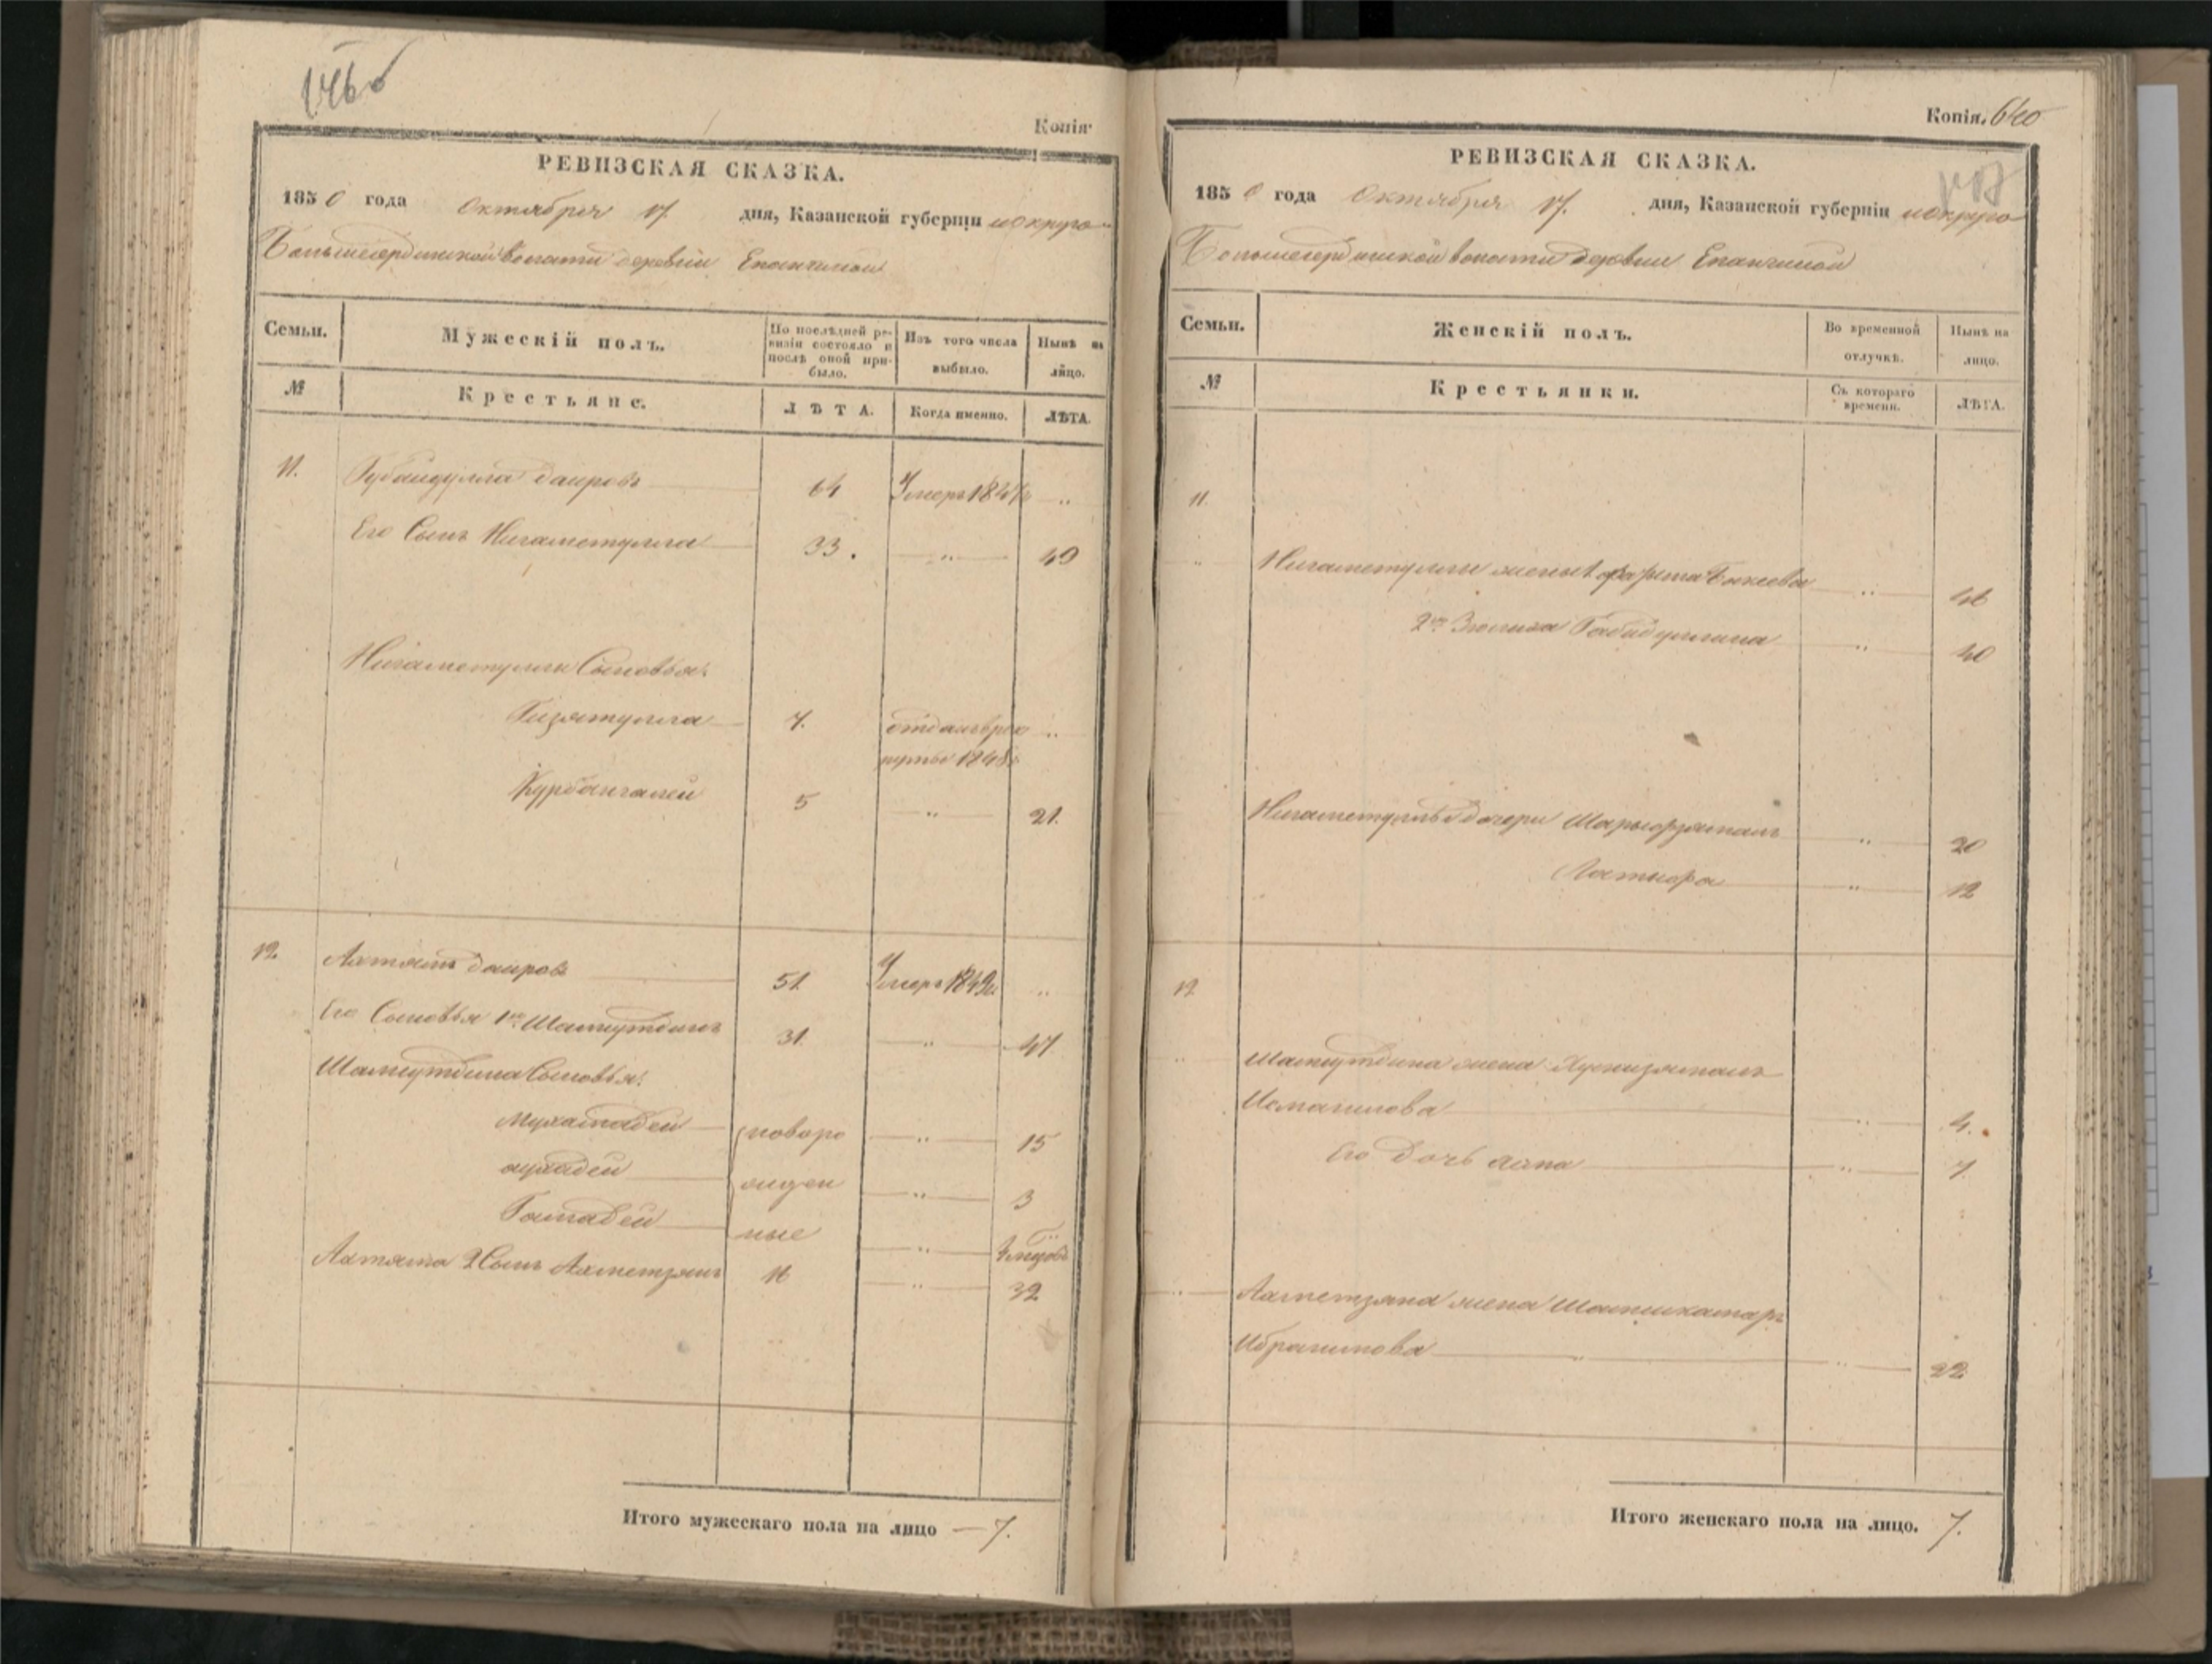 146об
Копія
РЕВИЗСКАЯ СКАЗКА.
1850 года Октября 17 дня, Казанской губерніи и округа
волости деревни Епанчиной
Семьи. Мужескій полъ. По послѣдней ревизіи состояло и послѣ оной прибыло. Изъ того числа выбыло. Нынѣ на лицо.
№ Крестьяне. ЛѢТА. Когда именно. ЛѢТА.
11. Губайдулла Даировъ 64 Умеръ „
Его Сынъ Нигаметулла 33. „ 49
Нигаметуллы Сыновья:
Гизятулла 7. отданъ въ рек „
руты 1848
Курбангалей 5 „ 21.
12. Ахтямъ Даировъ 51 Умеръ „
Его Сыновья 1й Шамсутдинъ 31 „ 47
Шамсутдина Сыновья:
новоро „ 15
жден „ 3
ные „
Ахтяма 2 Сынъ Ахметзянъ 16 „ 32
Итого мужескаго пола на лицо — 7.
Копія. 640
РЕВИЗСКАЯ СКАЗКА.
1850 года Октября 17. дня, Казанской губерніи и округа
волости деревни Епанчиной
Семьи. Женскій полъ. Во временной отлучкѣ. Нынѣ на лицо.
№ Крестьянки. Съ котораго времени. ЛѢТА.
11.
„ Нигаметуллы жены 1 Бикеева „ 46
2я Габидуллина „ 40
Нигаметуллы дочери „ 20
„ 12
12
„ Шамсутдина жена Хуснизямалъ
Исмагилова „ 4.
Его дочь „ 7.
„ Ахметзяна жена Шамсикамаръ
Ибрагимова „ „ 22
Итого женскаго пола на лицо. 7.